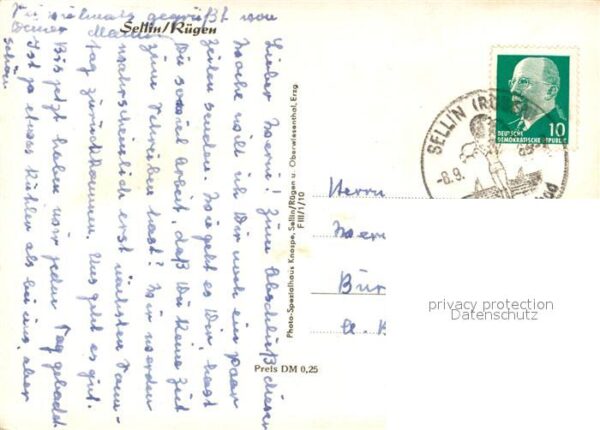 Sellin/Rügen
Lieber Werni! Zum Abschluß dieser
Woche will ich Dir noch ein paar
Zeilen senden. Wie geht es Dir, hast
Du soviel Arbeit, daß Du keine Zeit
zum Schreiben hast? Wir werden
wahrscheinlich erst nächsten Sonn-
tag zurückkommen. Uns geht es gut.
Bis jetzt haben wir jeden Tag gebadet.
Ist ja etwas kühler als bei uns, aber
schön
vielmals gegrüßt von
Deiner
Photo-Spezialhaus Knospe, Sellin/Rügen u. Oberwiesenthal, Erzg
F III/1/10
Preis DM 0,25
SELLIN (RÜGEN)
-8.9.
10
DEUTSCHE
DEMOKRATISCHE REPUBLIK
Herrn
privacy protection
Datenschutz